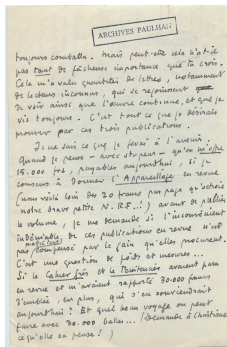 ARCHIVES PAULHAN
toujours combattu. Mais peut-être cela n'a-t-il
pas tant de fâcheuse importance que tu crois.
Cela m'a valu quantité de lettres, notamment
de lecteurs inconnus, qui se réjouissent
de voir ainsi que l'œuvre continue, et que je
vis toujours. C'est tout ce que je désirais
prouver par ces trois publications.
Je ne sais ce que je ferai à l'avenir.
Quand je pense - avec stupeur - qu'on m'offre
15.000 frs, payables aujourd'hui, si je
consens à donner l'Appareillage en revue
(nous voilà loin de 20 francs par page qu'octroie
notre brave petite N.R.F...!) avant de publier
le volume, je me demande si l'inconvénient
indéniable de ces publications en revue n'est
pas compensé par le gain qu'elles procurent.
C'est une question de poids et mesures...
Si le Cahier gris et le Pénitencier avaient paru
en revue et m'avaient rapporté 30.000 francs
d'emblée, en plus, qui s'en souviendrait
aujourd'hui? Et quel beau voyage on peut
faire avec 30.000 balles... (Demande à Christiane
ce qu'elle en pense!)